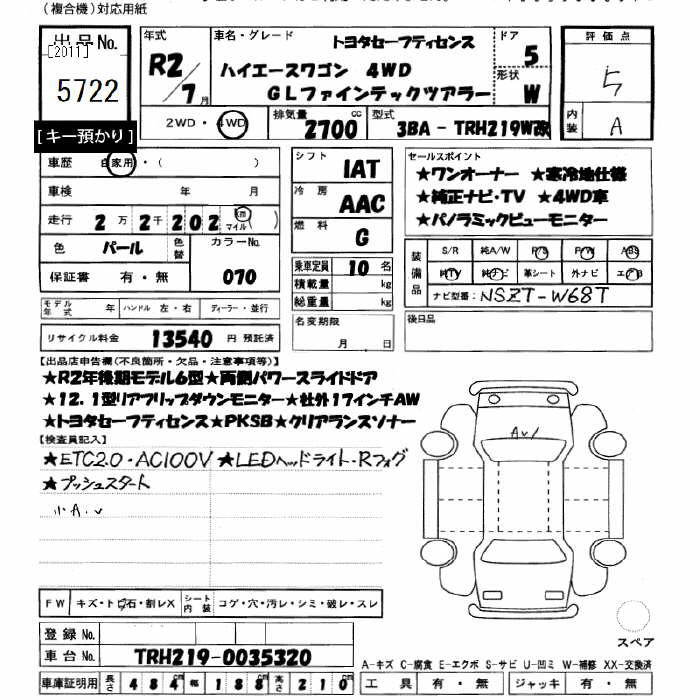 (複合機)対応用紙
出品No.
[2011]
5722
[キー預かり]
年式
R2/7月
車名・グレード
トヨタセーフティセンス
ハイエースワゴン 4WD
GLファインテックツアラー
ドア
5
形状
W
評価点
5
内装
A
2WD・4WD
排気量
2700cc
型式
3BA - TRH219W改
車歴 自家用・( )
車検 年 月
走行 2万2千202 km マイル( )
色 パール 色替 カラーNo.
保証書 有・無 070
シフト IAT
冷房 AAC
燃料 G
乗車定員 10名
積載量 kg
総重量 kg
セールスポイント
★ワンオーナー ★寒冷地仕様
★純正ナビ・TV ★4WD車
★パノラミックビューモニター
装備品
S/R 純A/W P/S P/W ABS
純TV 純ナビ 革シート 外ナビ エアB
ナビ型番: NSZT-W68T
モデル年式 年 ハンドル 左・右 ディーラー・並行
リサイクル料金 13540 円 預託済
名変期限
月 日
後日品
【出品店申告欄(不良箇所・欠品・注意事項等)】
★R2年後期モデル6型★両側パワースライドドア
★12.1型リアフリップダウンモニター★社外17インチAW
★トヨタセーフティセンス★PKSB★クリアランスソナー
【検査員記入】
★ETC2.0・AC100V ★LEDヘッドライト・Rフォグ
★プッシュスタート
小A.v
AV1
FW キズ・トビ石・割レX シート内装 コゲ・穴・汚レ・シミ・破レ・スレ
登録No.
車台No. TRH219-0035320
車庫証明用 長さ 484cm 幅 188cm 高さ 210cm
スペア
A-キズ C-腐食 E-エクボ S-サビ U-凹ミ W-補修 XX-交換済
工具 有・無 ジャッキ 有・無